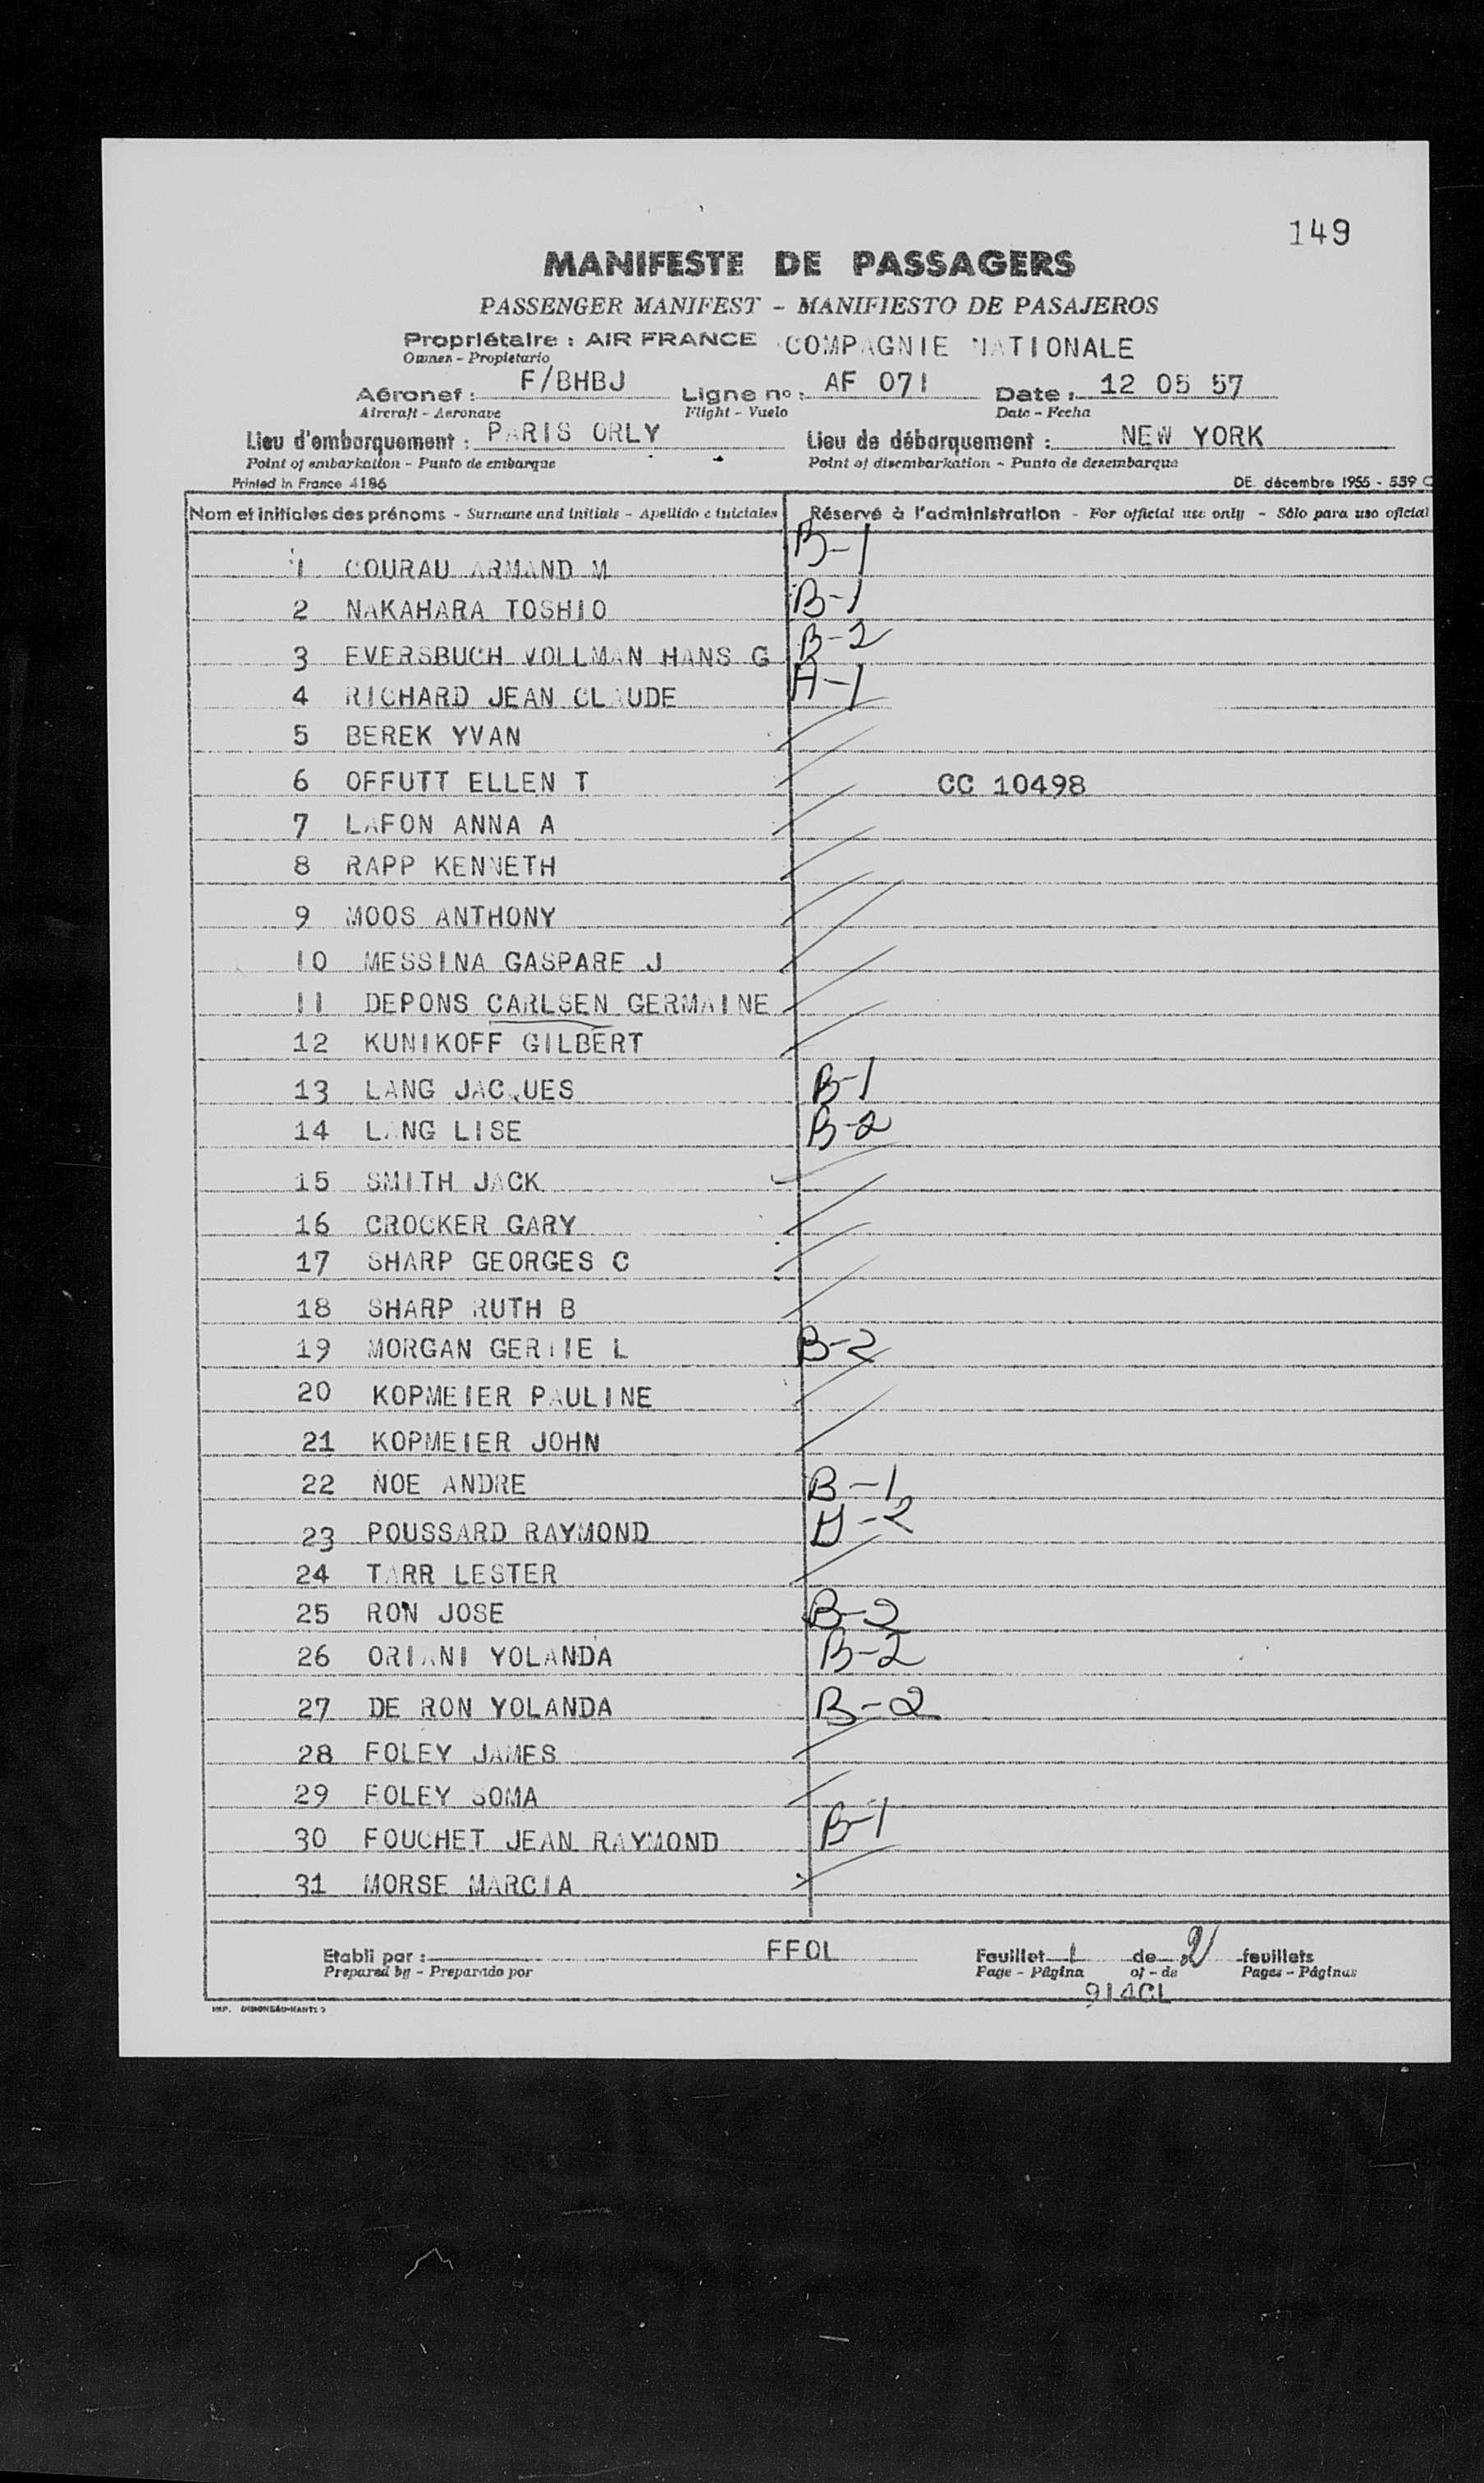 149
MANIFESTE DE PASSAGERS
PASSENGER MANIFEST - MANIFIESTO DE PASAJEROS
Propriétaire : AIR FRANCE COMPAGNIE NATIONALE
Owner - Propietario
Aéronef : F/BHBJ Ligne no : AF 071 Date : 12 05 57
Aircraft - Aeronave Flight - Vuelo Date - Fecha
Lieu d'embarquement : PARIS ORLY Lieu de débarquement : NEW YORK
Point of embarkation - Punto de embarque Point of disembarkation - Punto de desembarque
Printed in France 4186 DE. décembre 1955 - 559 C
Nom et initiales des prénoms - Surname and initials - Apellido e iniciales Réservé à l'administration - For official use only - Sólo para uso oficial
1 COURAU ARMAND M B-1
2 NAKAHARA TOSHIO B-1
3 EVERSBUCH VOLLMAN HANS G B-2
4 RICHARD JEAN CLAUDE A-1
5 BEREK YVAN
6 OFFUTT ELLEN T CC 10498
7 LAFON ANNA A
8 RAPP KENNETH
9 MOOS ANTHONY
10 MESSINA GASPARE J
11 DEPONS CARLSEN GERMAINE
12 KUNIKOFF GILBERT
13 LANG JACQUES B-1
14 LANG LISE B-2
15 SMITH JACK
16 CROCKER GARY
17 SHARP GEORGES C
18 SHARP RUTH B
19 MORGAN GERTIE L B-2
20 KOPMEIER PAULINE
21 KOPMEIER JOHN
22 NOE ANDRE B-1
23 POUSSARD RAYMOND -2
24 TARR LESTER
25 RON JOSE B-2
26 ORIANI YOLANDA B-2
27 DE RON YOLANDA B-2
28 FOLEY JAMES
29 FOLEY SOMA
30 FOUCHET JEAN RAYMOND B-1
31 MORSE MARCIA
Etabli par : FFOL Feuillet 1 de 2 feuillets
Prepared by - Preparado por Page - Página of - de Pages - Páginas
914CL
IMP.